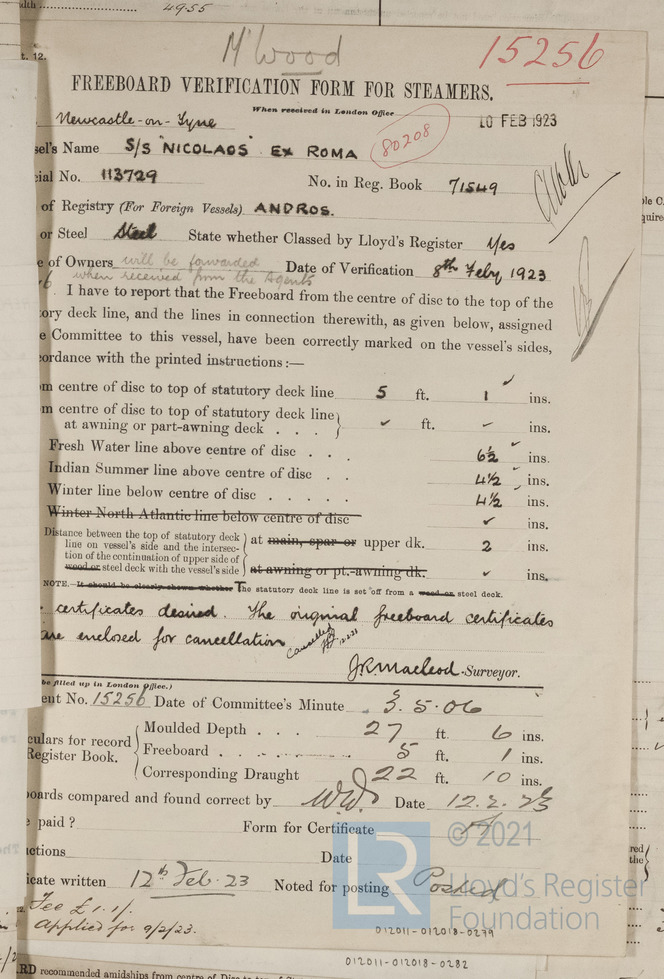 4955
t. 12.
M'Wood
15256
FREEBOARD VERIFICATION FORM FOR STEAMERS.
When received in London Office
Newcastle-on-Tyne
10 FEB 1923
80208
sel's Name S/S "NICOLAOS" EX ROMA
cial No. 113729 No. in Reg. Book 71549
of Registry (For Foreign Vessels) ANDROS.
or Steel Steel State whether Classed by Lloyd's Register Yes
e of Owners will be forwarded Date of Verification 8th Feby 1923
when received from the Agents
I have to report that the Freeboard from the centre of disc to the top of the
ory deck line, and the lines in connection therewith, as given below, assigned
e Committee to this vessel, have been correctly marked on the vessel's sides,
ordance with the printed instructions:—
m centre of disc to top of statutory deck line 5 ft. 1 ins.
m centre of disc to top of statutory deck line
at awning or part-awning deck . . . ft. – ins.
Fresh Water line above centre of disc . . . 6½ ins.
Indian Summer line above centre of disc . . 4½ ins.
Winter line below centre of disc . . . . . 4½ ins.
Winter North Atlantic line below centre of disc ins.
Distance between the top of statutory deck
line on vessel's side and the intersec-
tion of the continuation of upper side of
wood or steel deck with the vessel's side
at main, spar or upper dk. 2 ins.
at awning or pt.-awning dk. ins.
NOTE.—It should be clearly shown whether The statutory deck line is set off from a wood or steel deck.
certificates desired. The original freeboard certificates
are enclosed for cancellation
Cancelled
J.R. Macleod Surveyor.
be filled up in London Office.)
ent No. 15256 Date of Committee's Minute 3.5.06
culars for record
Register Book.
Moulded Depth . . . 27 ft. 6 ins.
Freeboard . . 5 ft. 1 ins.
Corresponding Draught 22 ft. 10 ins.
oards compared and found correct by W.W. Date 12.2.23
e paid? Form for Certificate
ctions Date
icate written 12th Feb. 23 Noted for posting Posted
Fee £1.1/.
Applied for 9/2/23.
© 2021
LR
Lloyd's Register
Foundation
012011-012018-0279
012011-012018-0282
RD recommended amidships from centre of Disc to top of